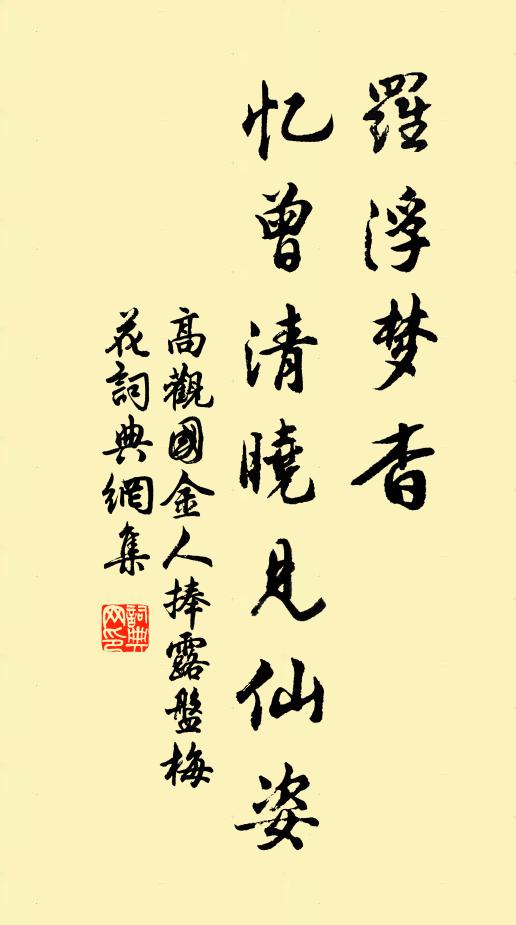 羅浮梦杳
忆曾清曉見仙姿
高觀國金人捧露盤梅
花詞典網集
詞典网印